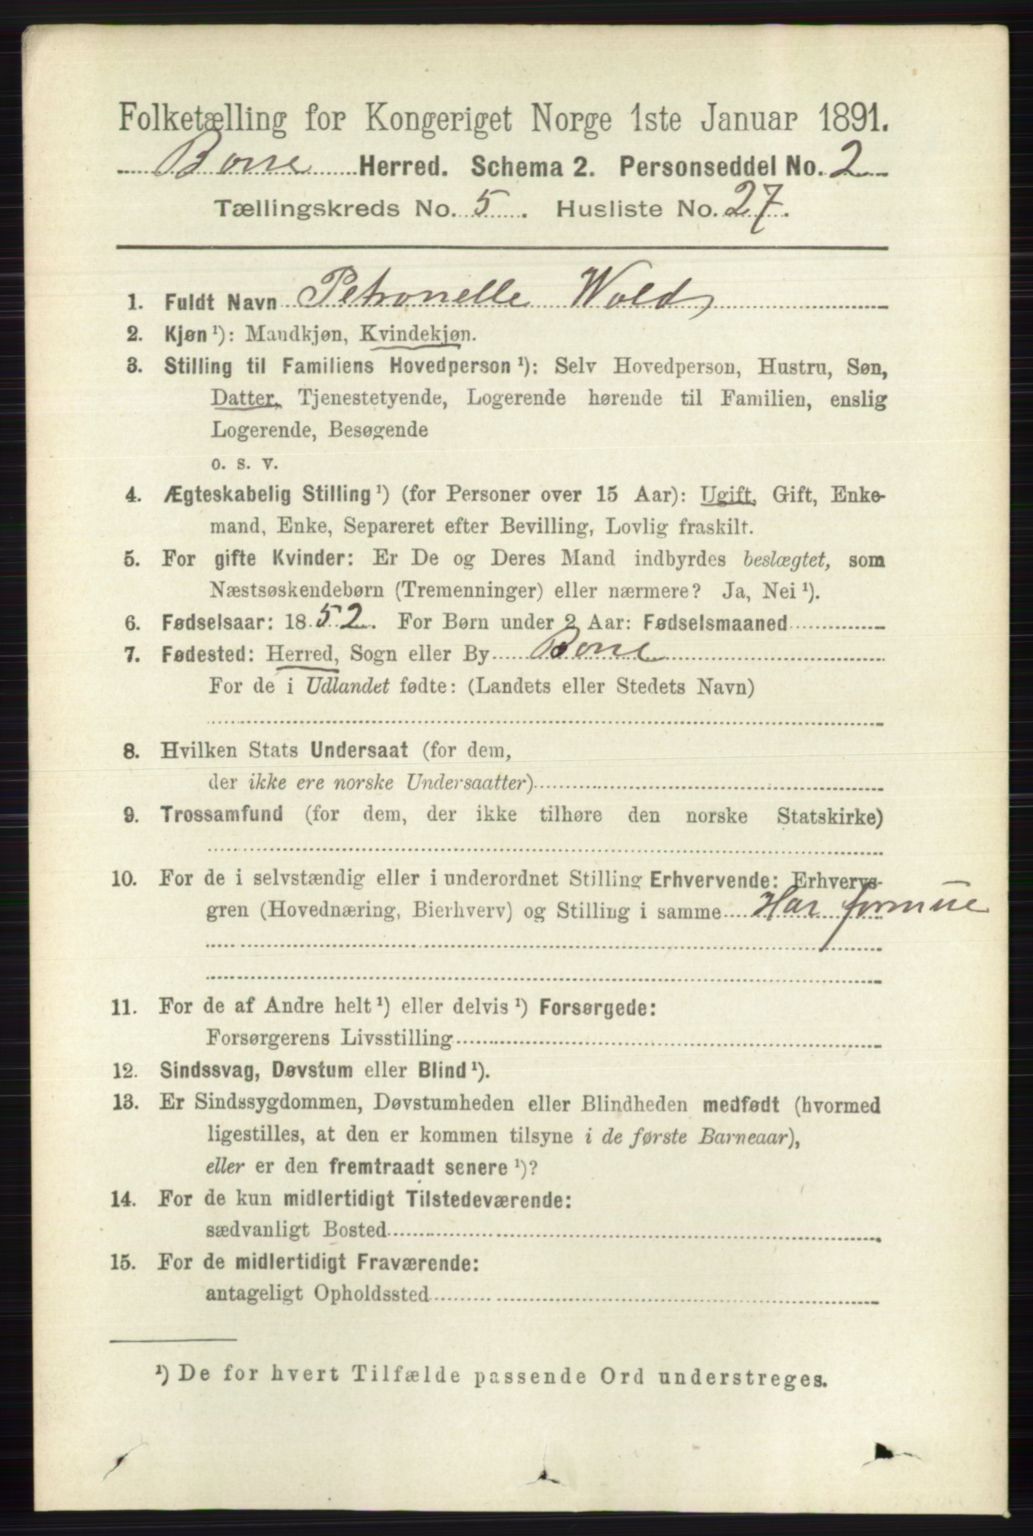 Folketælling for Kongeriget Norge 1ste Januar 1891.
Borre Herred. Schema 2. Personseddel No. 2
Tællingskreds No. 5. Husliste No. 27.
1. Fuldt Navn Petronelle Wold
2. Kjøn ¹): Mandkjøn, Kvindekjøn.
3. Stilling til Familiens Hovedperson ¹): Selv Hovedperson, Hustru, Søn,
Datter, Tjenestetyende, Logerende hørende til Familien, enslig
Logerende, Besøgende
o. s. v.
4. Ægteskabelig Stilling ¹) (for Personer over 15 Aar): Ugift, Gift, Enke-
mand, Enke, Separeret efter Bevilling, Lovlig fraskilt.
5. For gifte Kvinder: Er De og Deres Mand indbyrdes beslægtet, som
Næstsøskendebørn (Tremenninger) eller nærmere? Ja, Nei ¹).
6. Fødselsaar: 1852. For Børn under 2 Aar: Fødselsmaaned
7. Fødested: Herred, Sogn eller By Borre
For de i Udlandet fødte: (Landets eller Stedets Navn)
8. Hvilken Stats Undersaat (for dem,
der ikke ere norske Undersaatter)
9. Trossamfund (for dem, der ikke tilhøre den norske Statskirke)
10. For de i selvstændig eller i underordnet Stilling Erhvervende: Erhvervs-
gren (Hovednæring, Bierhverv) og Stilling i samme Har formue
11. For de af Andre helt ¹) eller delvis ¹) Forsørgede:
Forsørgerens Livsstilling
12. Sindssvag, Døvstum eller Blind ¹).
13. Er Sindssygdommen, Døvstumheden eller Blindheden medfødt (hvormed
ligestilles, at den er kommen tilsyne i de første Barneaar),
eller er den fremtraadt senere ¹)?
14. For de kun midlertidigt Tilstedeværende:
sædvanligt Bosted
15. For de midlertidigt Fraværende:
antageligt Opholdssted
¹) De for hvert Tilfælde passende Ord understreges.